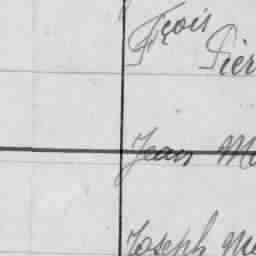 Fçois
Pier
Jean Ma
Joseph Ma